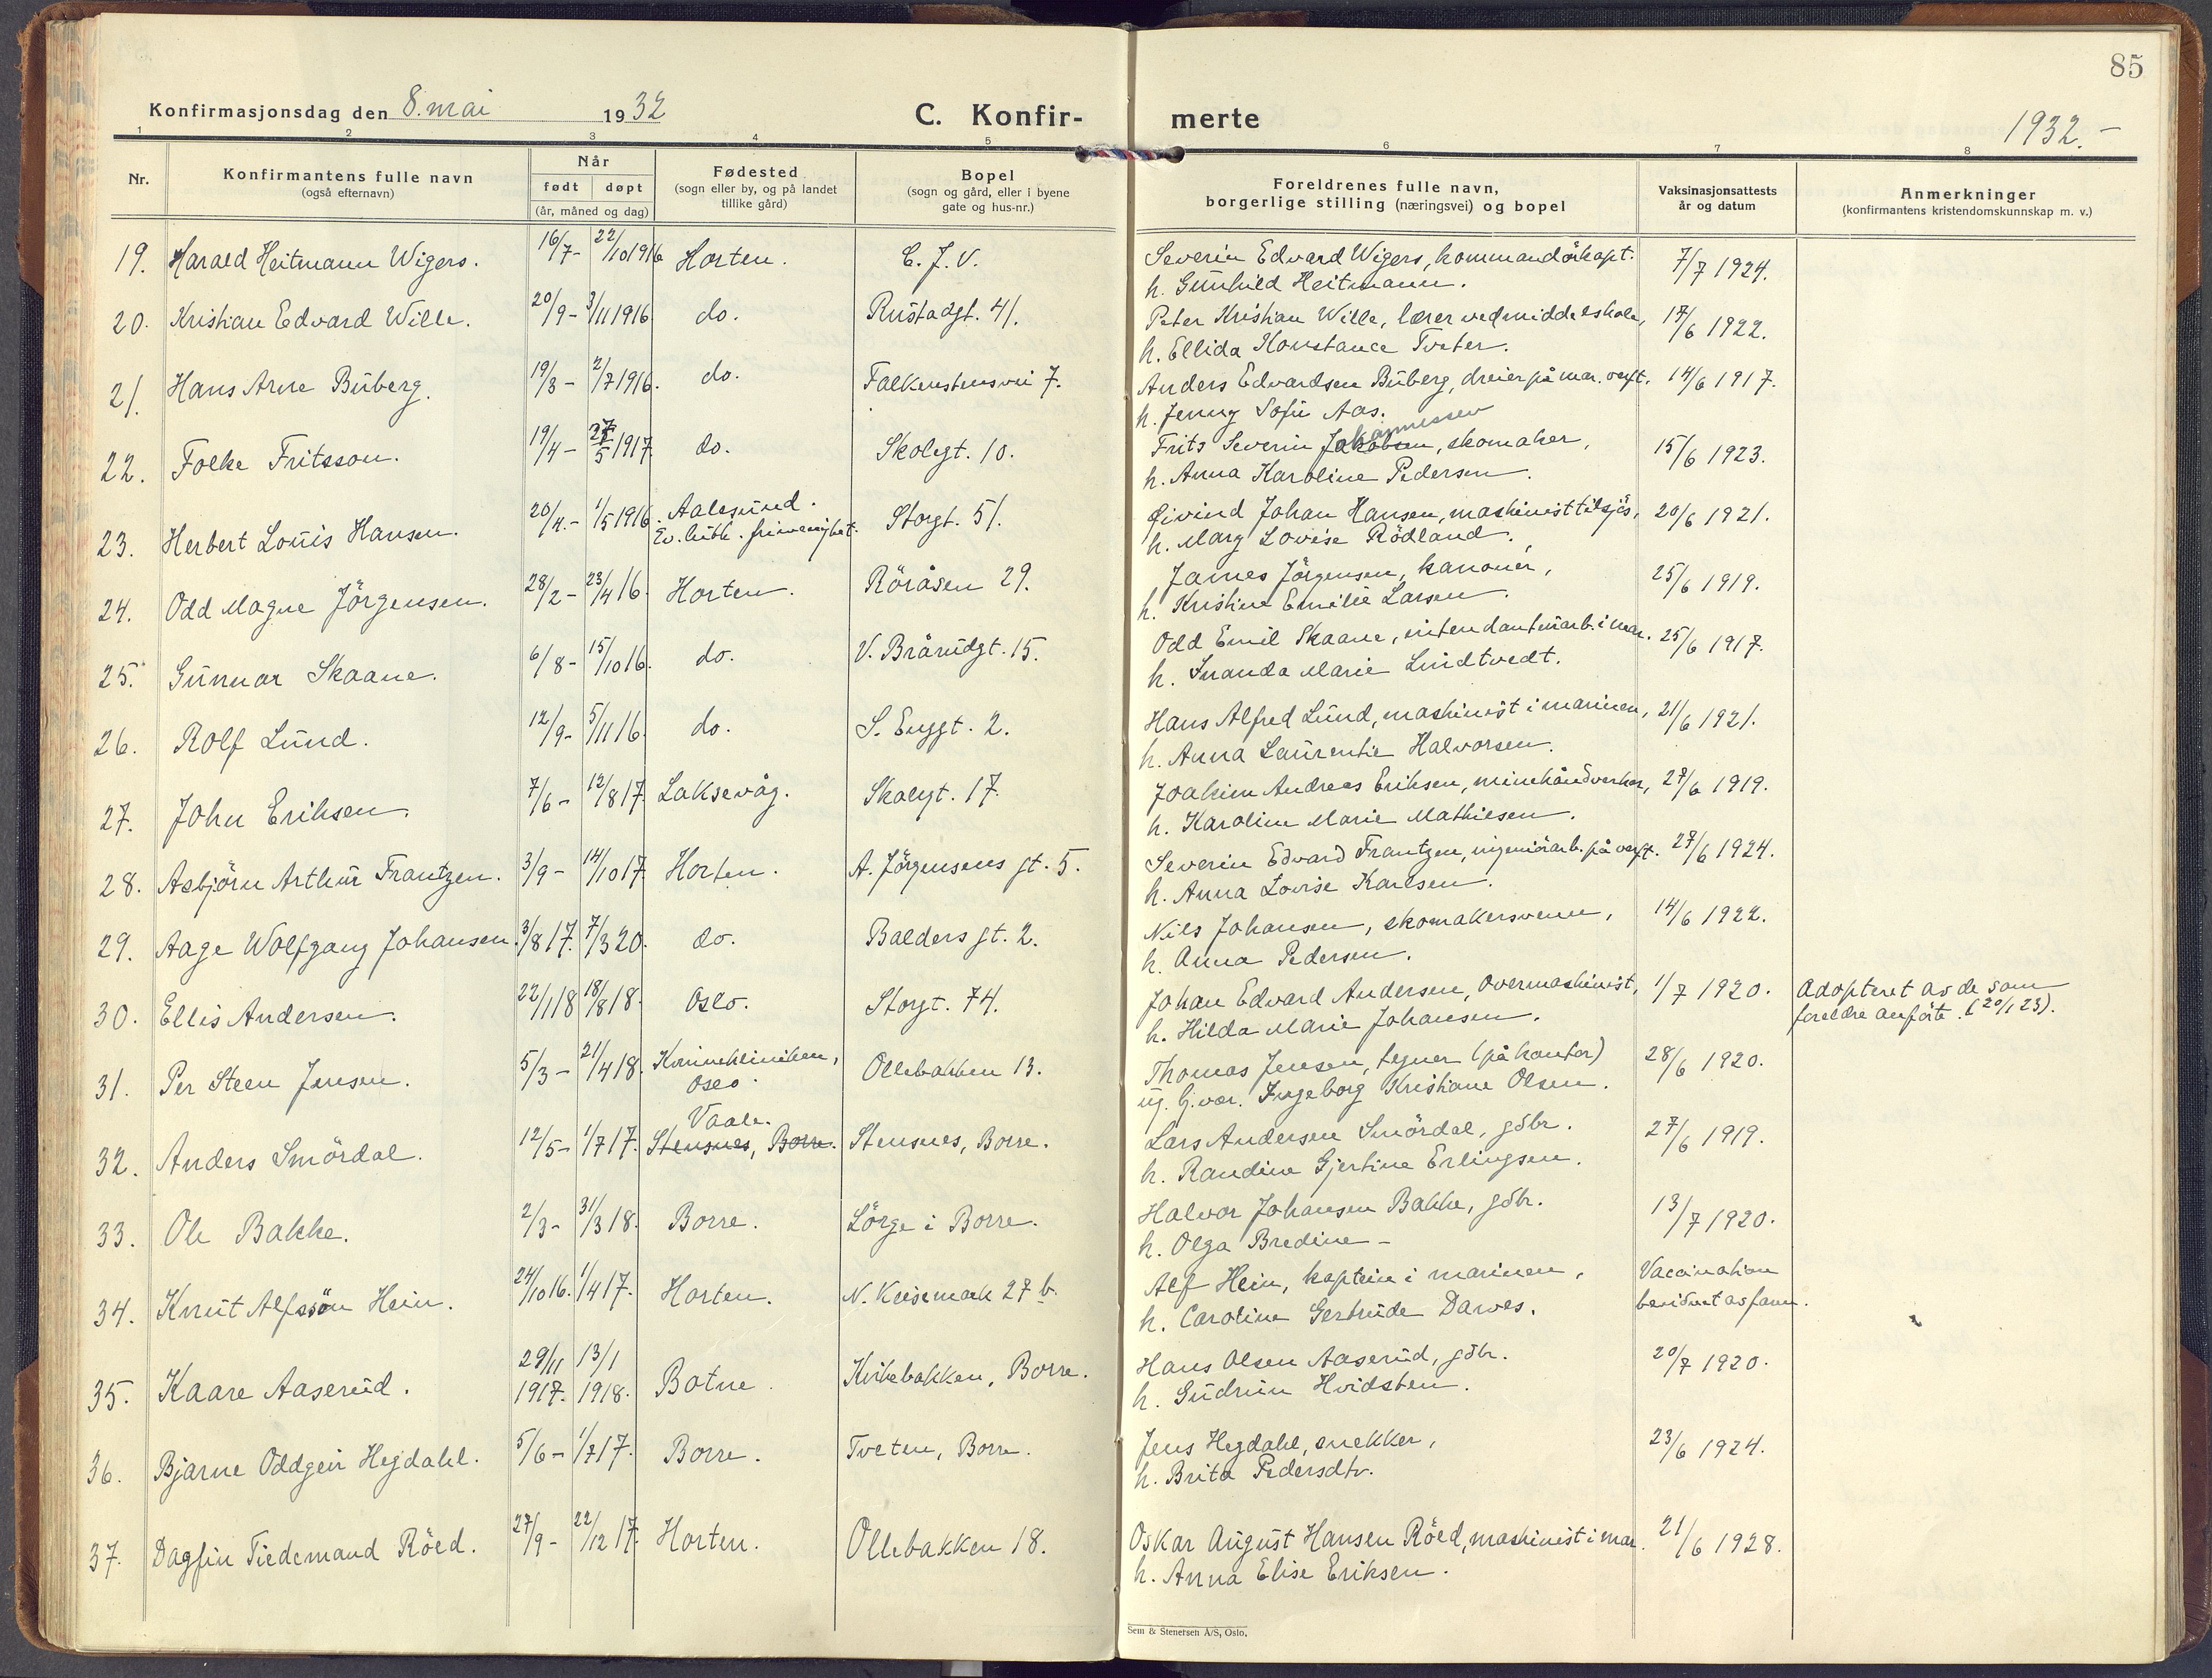 85
Konfirmasjonsdag den 8. mai 1932 C. Konfir- merte 1932.-
1 2 3 4 5 6 7 8
Nr. Konfirmantens fulle navn (også efternavn) Når født døpt (år, måned og dag) Fødested (sogn eller by, og på landet tillike gård) Bopel (sogn og gård, eller i byene gate og hus-nr.) Foreldrenes fulle navn, borgerlige stilling (næringsvei) og bopel Vaksinasjonsattests år og datum Anmerkninger (konfirmantens kristendomskunnskap m. v.)
19. Harald Heitmann Wigers. 16/7- 22/10 1916 Horten. C. J. V. Severin Edvard Wigers, kommandörkapt. 7/7 1924.
h. Gunhild Heitmann.
20. Kristian Edvard Wille. 20/9- 3/11 1916. do. Rustadgt. 41. Peter Kristian Wille, lærer ved middelskole, 17/6 1922.
h. Ellida Konstance Tveter.
21. Hans Arne Buberg. 19/3- 2/7 1916. do. Falkenstensvei 7. Anders Edvardsen Buberg, dreier på mar. verft. 14/6 1917.
h. Jenny Sofie Aas.
22. Folke Fritsson. 19/4- 27/5 1917. do. Skolegt. 10. Frits Severin Jakobsen Johannessen, skomaker, 15/6 1923.
h. Anna Karoline Pedersen.
23. Herbert Louis Hansen. 20/4.- 1/5 1916. Aalesund. Ev. luth. frimenighet. Storgt. 51. Øivind Johan Hansen, maskinist tilsjös, 20/6 1921.
h. Marg Lovise Rödland.
24. Odd Magne Jörgensen. 28/2- 23/4 16. Horten. Röråsen 29. James Jörgensen, kanonér, 25/6 1919.
h. Kristine Emilie Larsen.
25. Gunnar Skaane. 6/8- 15/10 16. do. V. Brårudgt. 15. Odd Emil Skaane, intendanturarb. i mar. 25/6 1917.
h. Inanda Marie Lindtvedt.
26. Rolf Lund. 12/9- 5/11 16. do. S. Enggt. 2. Hans Alfred Lund, maskinist i marinen, 21/6 1921.
h. Anna Laurentie Halvorsen.
27. John Eriksen. 7/6- 12/8 17. Laksevåg. Skolegt. 17. Joakim Andreas Eriksen, minehåndverker, 27/6 1919.
h. Karoline Marie Mathiesen.
28. Asbjörn Arthur Frantzen. 3/9- 14/10 17. Horten. A. Jörgensens gt. 5. Severin Edvard Frantzen, ingeniörarb. på verft. 27/6 1924.
h. Anna Lovise Karlsen.
29. Aage Wolfgang Johansen. 3/8 17. 7/3 20. do. Balders gt. 2. Nils Johansen, skomakersvenn, 14/6 1922.
h. Anna Pedersen.
30. Ellis Andersen. 22/1 18 18/8 18. Oslo. Storgt. 74. Johan Edvard Andersen, Overmaskinist, 1/7 1920. Adopteret av de som
h. Hilda Marie Johansen. foreldre anförte. (20/1 23).
31. Per Steen Jensen. 5/3- 21/4 18. Kvinneklinikken, Oslo. Ollebakken 13. Thomas Jensen, tegner (på kontor) 28/6 1920.
ug. hj. vær. Ingeborg Kristiane Olsen.
32. Anders Smördal. 12/5- 1/7 17. Vaale. Stensnes, Borre. Stensnes, Borre. Lars Andersen Smördal, gbr. 27/6 1919.
h. Randine Gjertine Erlingsen.
33. Ole Bakke. 2/3- 31/3 18. Borre. Lörge i Borre. Halvor Johansen Bakke, gbr. 13/7 1920.
h. Olga Bredine -
34. Knut Alfssön Hein. 24/10 16. 1/4 17. Horten. N. Keisemark 27 b. Alf Hein, kaptein i marinen, Vaccination
h. Caroline Gertrude Dawes. bevidnet av faren.
35. Kaare Aaserud. 29/11 1917. 13/1 1918. Botne. Kirkebakken, Borre. Hans Olsen Aaserud, gbr. 20/7 1920.
h. Gudrun Hvidsten.
36. Bjarne Oddgeir Hegdahl. 5/6- 1/7 17. Borre. Tveten, Borre. Jens Hegdahl, snekker, 23/6 1924.
h. Brita Pedersdtr.
37. Dagfin Tiedemand Röed. 27/9- 22/12 17. Horten. Ollebakken 18. Oskar August Hansen Röed, maskinist i mar. 21/6 1928.
h. Anna Elise Eriksen.
Sem & Stenersen A/S, Oslo.